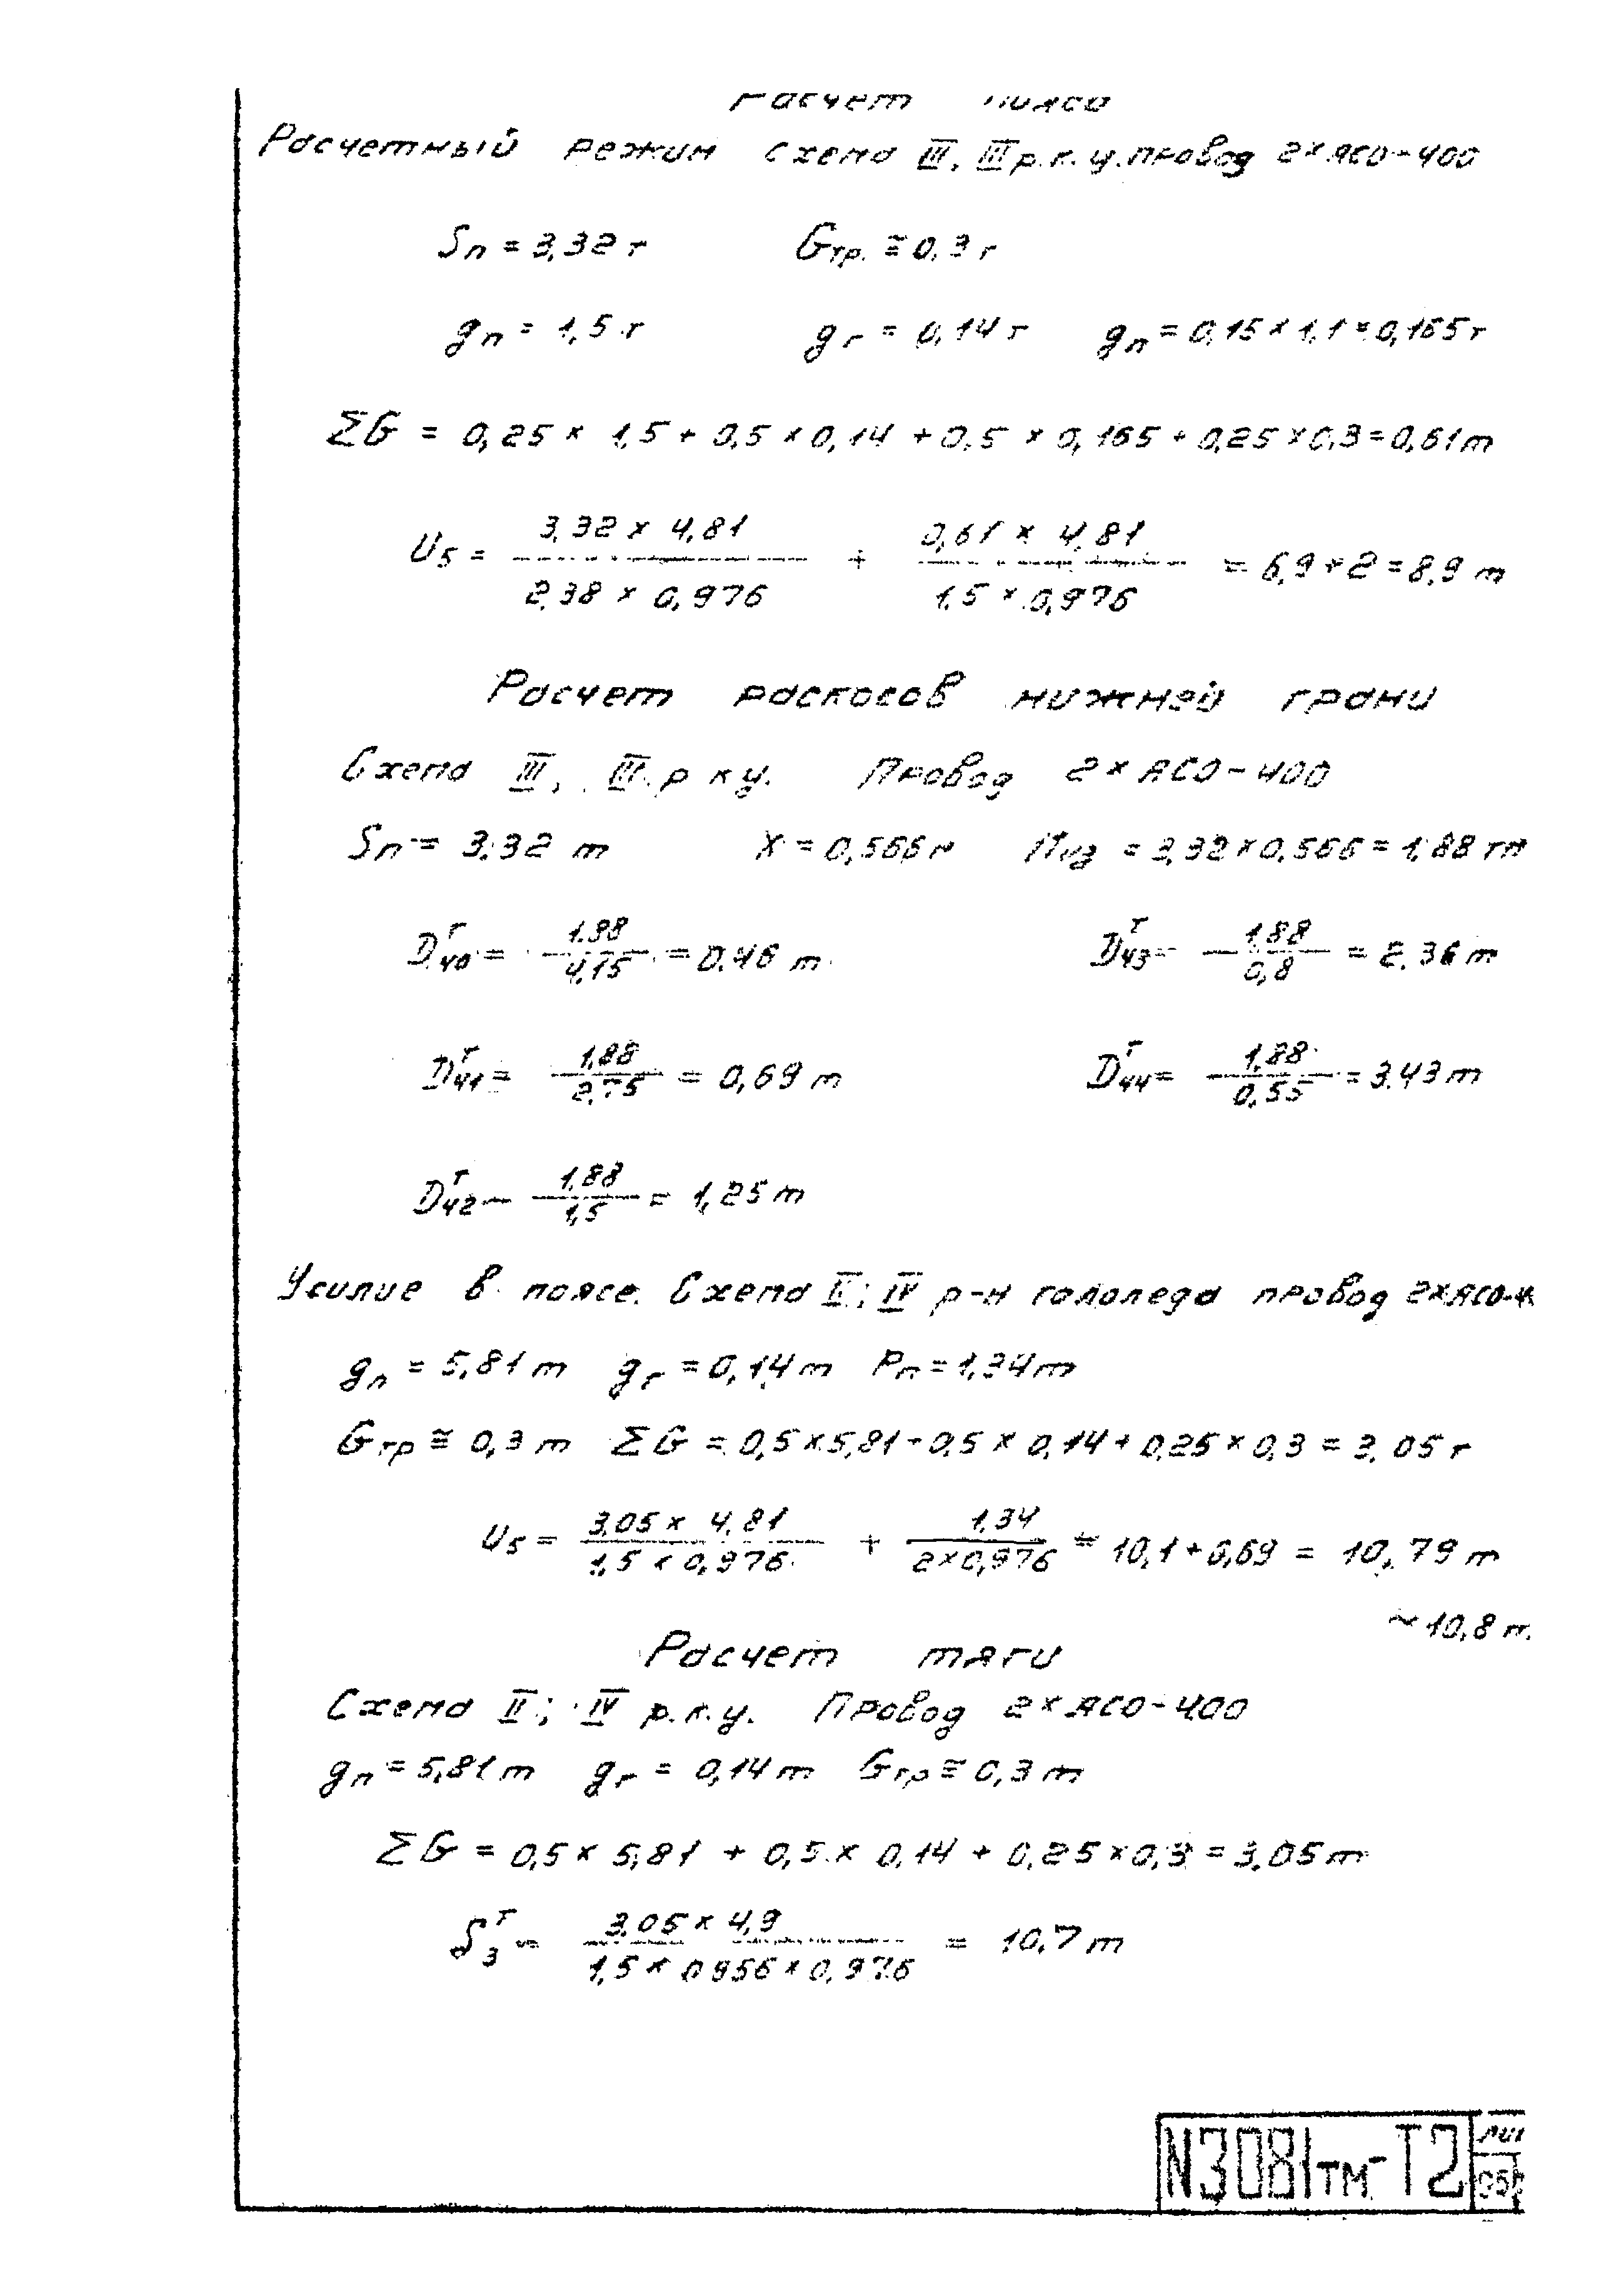 Расчет пояса
Расчетный режим схема III, III р.к.у. провод 2×АСО-400
Sп = 3,32 т Gтр. ≅ 0,3 т
gп = 1,5 т gг = 0,14 т gл = 0,15 × 1,1 = 0,165 т
ΣG = 0,25 × 1,5 + 0,5 × 0,14 + 0,5 × 0,165 + 0,25 × 0,3 = 0,61 т
U5 = 3,32 × 4,81 / 2,38 × 0,976 + 0,61 × 4,81 / 1,5 × 0,976 = 6,9 + 2 = 8,9 т
Расчет раскосов нижней грани
Схема III, III р к у. Провод 2×АСО-400
Sп = 3,32 т X = 0,566 м Миз = 3,32 × 0,566 = 1,88 тм
Dт40 = 1.88 / 4,15 = 0.46 т Dт43 = 1,88 / 0,8 = 2.36 т
Dт41 = 1,88 / 2,75 = 0,69 т Dт44 = 1,88 / 0,55 = 3.43 т
Dт42 = 1,88 / 1,5 = 1,25 т
Усилие в поясе. Схема II; IV р-н гололеда провод 2×АСО-4
gп = 5,81 т gг = 0,14 т Pп = 1,34 т
Gтр ≅ 0,3 т ΣG = 0,5 × 5,81 + 0,5 × 0,14 + 0,25 × 0,3 = 3,05 т
U5 = 3,05 × 4,81 / 1,5 × 0,976 + 1,34 / 2×0,976 = 10,1 + 0,69 = 10,79 т
~ 10,8 т.
Расчет тяги
Схема II; IV р.к.у. Провод 2×АСО-400
gп = 5,81 т gг = 0,14 т Gтр ≅ 0,3 т
ΣG = 0,5 × 5,81 + 0,5 × 0,14 + 0,25 × 0,3 = 3,05 т
Sт3 = 3,05 × 4,9 / 1,5 × 0956 × 0,976 = 10,7 т
N3081тм-Т2